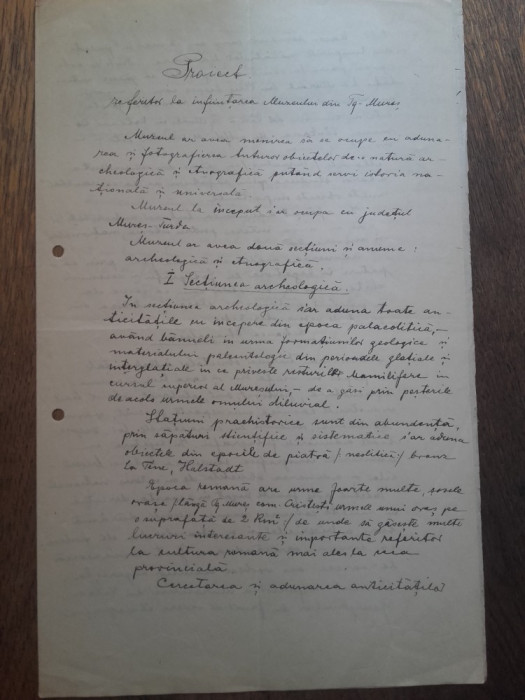 Proiect
referitor la înființarea Muzeului din Tg-Mureș
Muzeul ar avea menirea să se ocupe cu aduna-
rea și fotografierea tuturor obiectelor de-o natură ar-
cheologică și etnografică putând servi istoria na-
țională și universală.
Muzeul la început s'ar ocupa cu județul
Mureș-Turda.
Muzeul ar avea două secțiuni și anume:
archeologică și etnografică.
I Secțiunea archeologică.
În secțiunea archeologică s'ar aduna toate an-
ticitățile cu începere din epoca palaeolitică,-
având bănueli în urma formațiunilor geologice și
materialului paleontologic din perioadele glațiale și
interglațiale în ce privește resturile Mamifere în
cursul superior al Mureșului,- de a găsi prin peșterile
de acolo urmele omului diluvial.
Stațiuni praehistorice sunt din abundență,
prin săpături stientifice și sistematice s'ar aduna
obiectele din epocile de piatră / neolitică / bronz
la Tène, Halstadt
Epoca romană are urme foarte multe, șosele
orașe / lângă Tg-Mureș com. Cristești urmele unui oraș pe
o suprafață de 2 Km² / de unde să găsește multe
lucruri interesante și importante referitor
la cultura romană mai ales la cea
provincială.
Cercetarea și adunarea anticităților